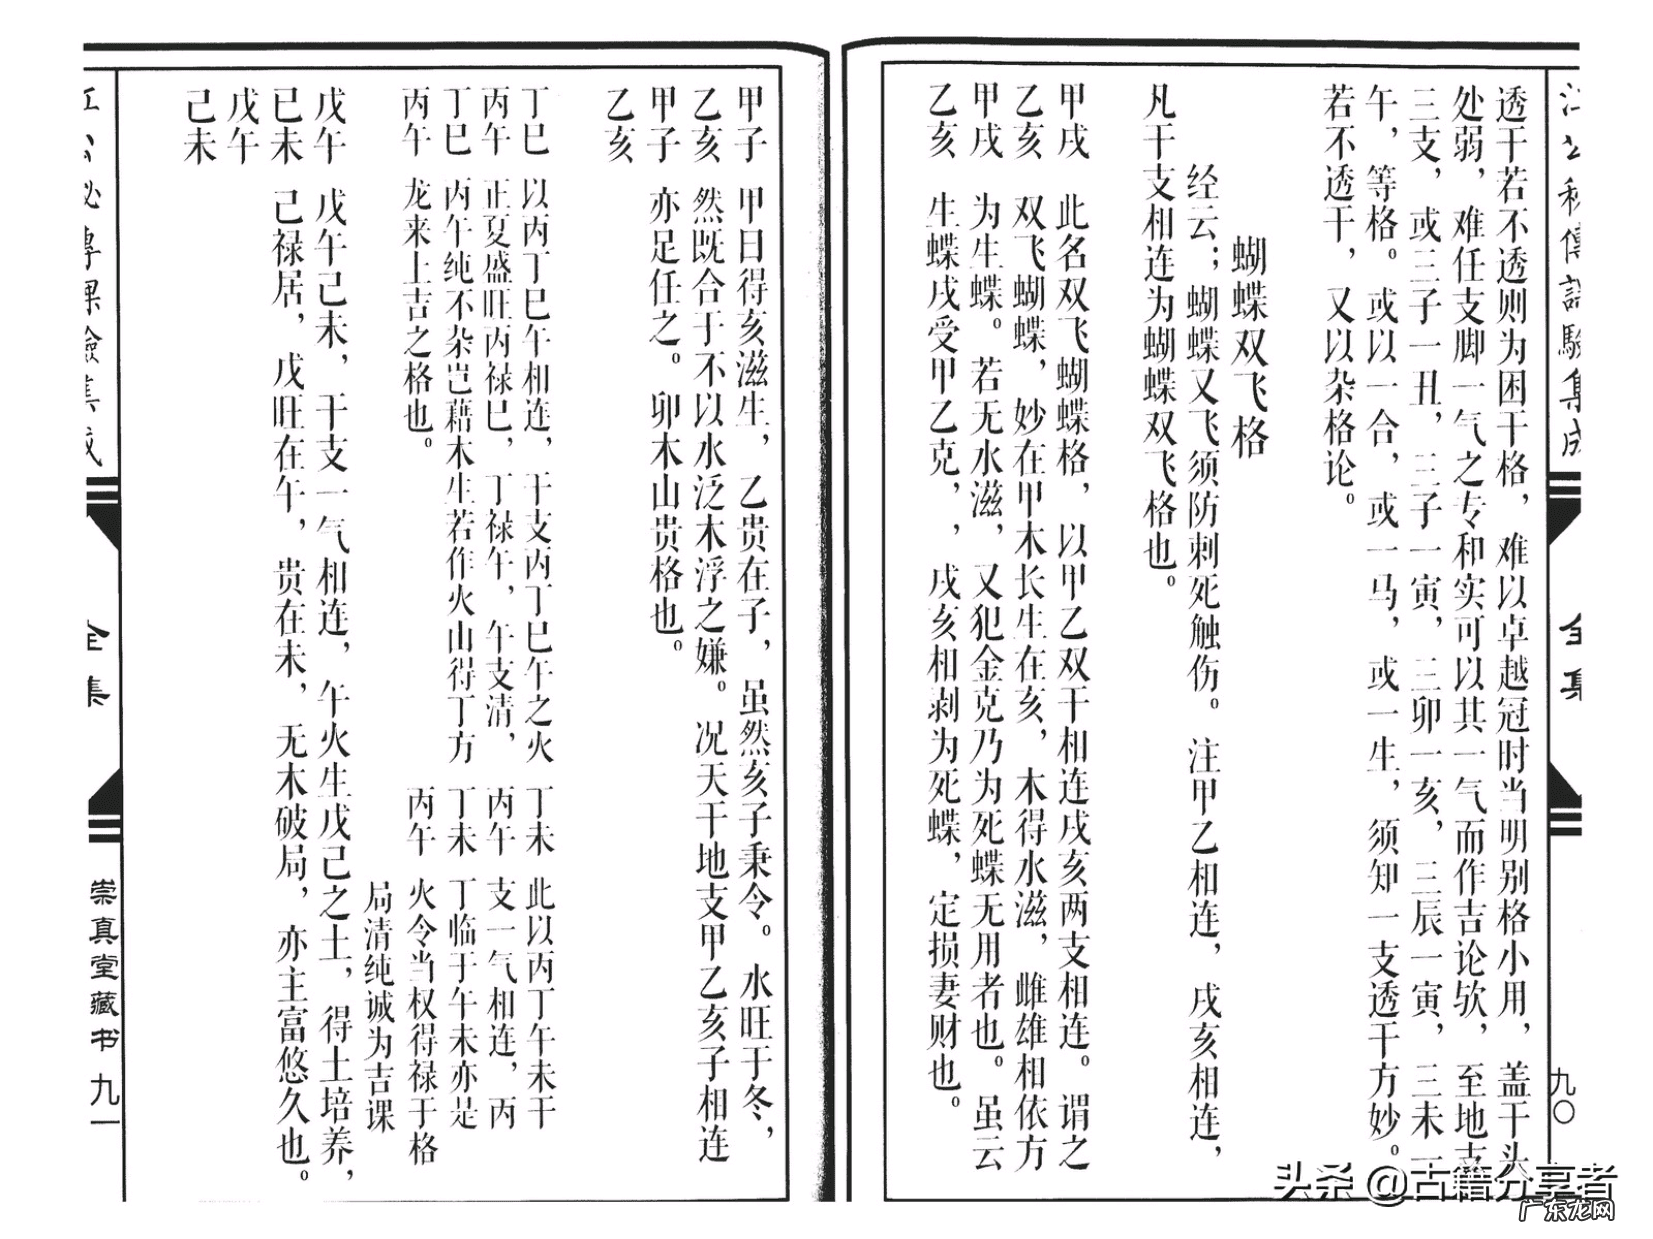 江公秘传课验集成
全集
九〇
透干若不透则为困干格，难以卓越冠时当明别格小用，盖干头
处弱，难任支脚一气之专和实可以其一气而作吉论欤，至地支
三支，或三子一丑，三子一寅，三卯一亥，三辰一寅，三未一
午，等格。或以一合，或一马，或一生，须知一支透干方妙。
若不透干，又以杂格论。
蝴蝶双飞格
经云；蝴蝶又飞须防刺死触伤。注甲乙相连，戌亥相连，
凡干支相连为蝴蝶双飞格也。
甲戌 此名双飞蝴蝶格，以甲乙双干相连戌亥两支相连。谓之
乙亥 双飞蝴蝶，妙在甲木长生在亥，木得水滋，雌雄相依方
甲戌 为生蝶。若无水滋，又犯金克乃为死蝶无用者也。虽云
乙亥 生蝶戌受甲乙克，，戌亥相剥为死蝶，定损妻财也。
甲子 甲日得亥滋生，乙贵在子，虽然亥子秉令。水旺于冬，
乙亥 然既合于不以水泛木浮之嫌。况天干地支甲乙亥子相连
甲子 亦足任之。卯木山贵格也。
乙亥
丁巳 以丙丁巳午相连，干支丙丁巳午之火
丙午 正夏盛旺丙禄巳，丁禄午，午支清，
丁巳 丙午纯不杂岂藉木生若作火山得丁方
丙午 龙来上吉之格也。
丁未 此以丙丁午未干
丙午 支一气相连，丙
丁未 丁临于午未亦是
丙午 火令当权得禄于格
局清纯诚为吉课
戊午 戊午己未，干支一气相连，午火生戊己之土，得土培养，
已未 己禄居，戊旺在午，贵在未，无木破局，亦主富悠久也。
戊午
己未
江公秘传课验集成
全集
崇真堂藏书 九一
头条 @古籍分享者
广东龙网